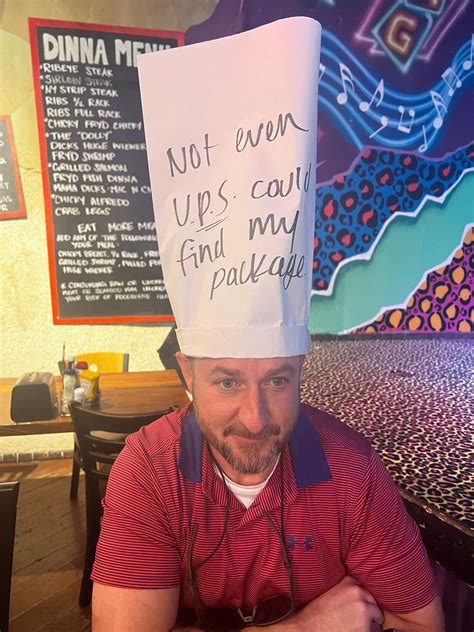 DINNA MENU
*RIBEYE STEAK
*SIRLOIN STEAK
*NY STRIP STEAK
RIBS ½ RACK
RIBS FULL RACK
*CHICKY FRYD CHICKY
*THE "DOLLY"
DICKS HUGE WIENER
FRYD SHRIMP
*GRILLED SALMON
FRYD FISH DINNA
MAMA DICKS MAC N
*CHICKY ALFREDO
CRAB LEGS
EAT MORE MEA
ADD ANY OF THE FOLLOWING
YOUR MEAL
CHICKY BREAST, ½ RACK, FRYD
GRILLED SHRIMP, PULLED
HUGE WIENER
Not even
U.P.S. could
find my
package.
G